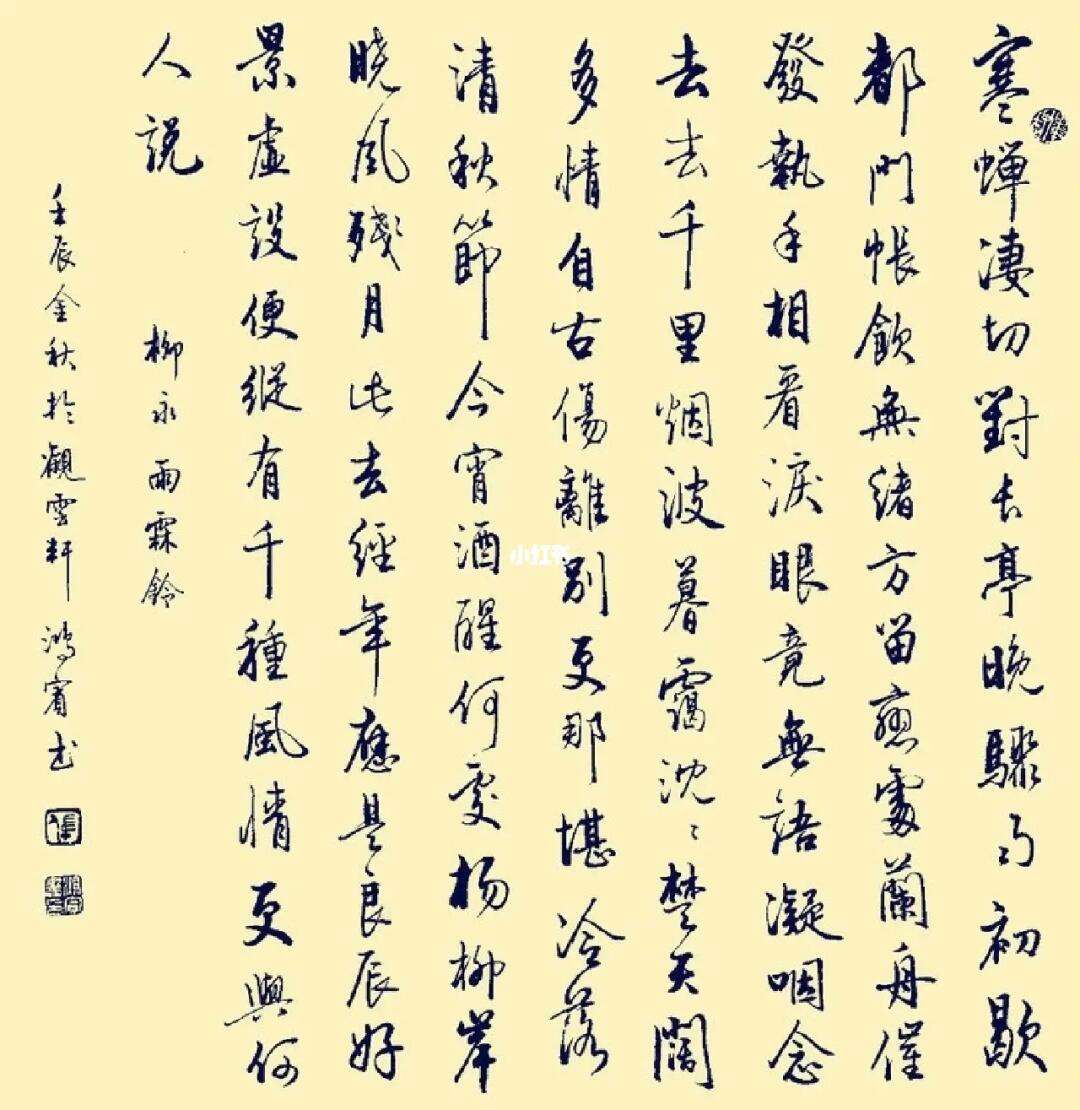 寒蝉凄切對長亭晚驟雨初歇
都門帳飲無緒方留戀處蘭舟催
發執手相看淚眼竟無語凝咽念
去去千里烟波暮靄沈々楚天闊
多情自古傷離別更那堪冷落
清秋節今宵酒醒何處楊柳岸
曉風殘月此去經年應是良辰好
景虛設便縱有千種風情更與何
人說
柳永 雨霖鈴
壬辰金秋於觀雲軒 鴻賓書
小红书